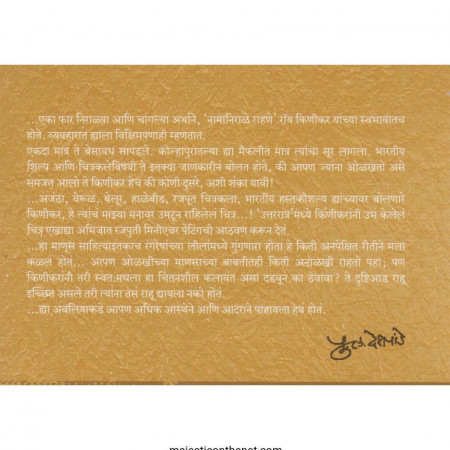 ...एका फार निराळ्या आणि चांगल्या अर्थाने, 'नामानिराळे राहणे' रॉय किणीकर यांच्या स्वभावातच
होते. व्यवहारात ह्याला विक्षिप्तपणाही म्हणतात.
एकदा मात्र ते बेसावध सापडले. कोल्हापुरातल्या ह्या मैफलीत मात्र त्यांचा सूर लागला. भारतीय
शिल्प आणि चित्रकलेविषयी ते इतक्या जाणकारीनं बोलत होते, की आपण ज्यांना ओळखतो असे
समजत आलो ते किणीकर हेच की कोणी दुसरे, अशी शंका यावी!
...अजंठा, वेरूळ, बेलूर, हाळेबीड, रजपूत चित्रकला, भारतीय हस्तकौशल्य ह्यांच्यावर बोलणारे
किणीकर, हे त्यांचं माझ्या मनावर उमटून राहिलेलं चित्र...! 'उत्तररात्र'मध्ये किणीकरांनी उभं केलेलं
चित्र एखाद्या अभिजात रजपुती मिनीएचर पेंटिंगची आठवण करून देतं.
...हा माणूस साहित्याइतकाच रंगरेषांच्या लीलांमध्ये गुंगणारा होता हे किती अनपेक्षित रीतीने मला
कळलं होतं... आपण ओळखीच्या माणसाच्या बाबतीतही किती अनोळखी राहतो पहा; पण
किणीकरांनी तरी स्वतःमधला हा चिंतनशील कलावंत असा दडवून का ठेवावा? ते दृष्टिआड राहू
इच्छित असले तरी त्यांना तसं राहू द्यायला नको होतं.
...ह्या अवलियाकडे आपण अधिक आस्थेने आणि आदराने पाहायला हवं होतं.
पु. ल. देशपांडे
majesticonthenet.com